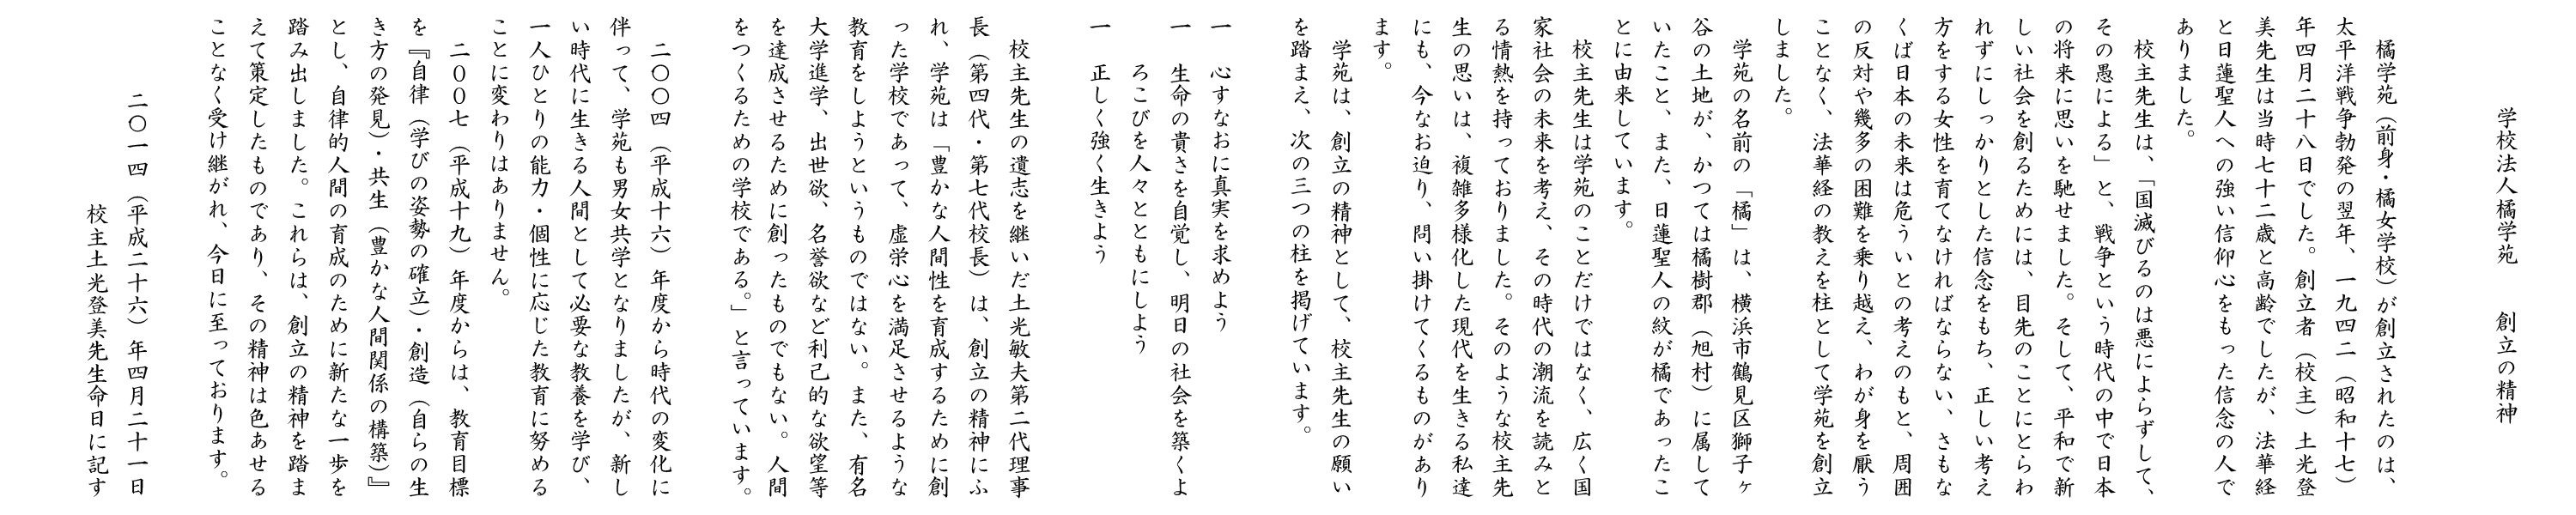 学校法人橘学苑　　創立の精神
　橘学苑（前身・橘女学校）が創立されたのは、
太平洋戦争勃発の翌年、一九四二（昭和十七）
年四月二十八日でした。創立者（校主）土光登
美先生は当時七十二歳と高齢でしたが、法華経
と日蓮聖人への強い信仰心をもった信念の人で
ありました。
　校主先生は、「国滅びるのは悪によらずして、
その愚による」と、戦争という時代の中で日本
の将来に思いを馳せました。そして、平和で新
しい社会を創るためには、目先のことにとらわ
れずにしっかりとした信念をもち、正しい考え
方をする女性を育てなければならない、さもな
くば日本の未来は危ういとの考えのもと、周囲
の反対や幾多の困難を乗り越え、わが身を厭う
ことなく、法華経の教えを柱として学苑を創立
しました。
　学苑の名前の「橘」は、横浜市鶴見区獅子ヶ
谷の土地が、かつては橘樹郡（旭村）に属して
いたこと、また、日蓮聖人の紋が橘であったこ
とに由来しています。
　校主先生は学苑のことだけではなく、広く国
家社会の未来を考え、その時代の潮流を読みと
る情熱を持っておりました。そのような校主先
生の思いは、複雑多様化した現代を生きる私達
にも、今なお迫り、問い掛けてくるものがあり
ます。
　学苑は、創立の精神として、校主先生の願い
を踏まえ、次の三つの柱を掲げています。
一　心すなおに真実を求めよう
一　生命の貴さを自覚し、明日の社会を築くよ
　　ろこびを人々とともにしよう
一　正しく強く生きよう
　校主先生の遺志を継いだ土光敏夫第二代理事
長（第四代・第七代校長）は、創立の精神にふ
れ、学苑は「豊かな人間性を育成するために創
った学校であって、虚栄心を満足させるような
教育をしようというものではない。また、有名
大学進学、出世欲、名誉欲など利己的な欲望等
を達成させるために創ったものでもない。人間
をつくるための学校である。」と言っています。
　二〇〇四（平成十六）年度から時代の変化に
伴って、学苑も男女共学となりましたが、新し
い時代に生きる人間として必要な教養を学び、
一人ひとりの能力・個性に応じた教育に努める
ことに変わりはありません。
　二〇〇七（平成十九）年度からは、教育目標
を『自律（学びの姿勢の確立）・創造（自らの生
き方の発見）・共生（豊かな人間関係の構築）』
とし、自律的人間の育成のために新たな一歩を
踏み出しました。これらは、創立の精神を踏ま
えて策定したものであり、その精神は色あせる
ことなく受け継がれ、今日に至っております。
二〇一四（平成二十六）年四月二十一日
校主土光登美先生命日に記す